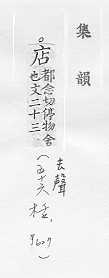 集韻
。店
都念切停物舍
也文二十三
(去聲
五十六㮇,